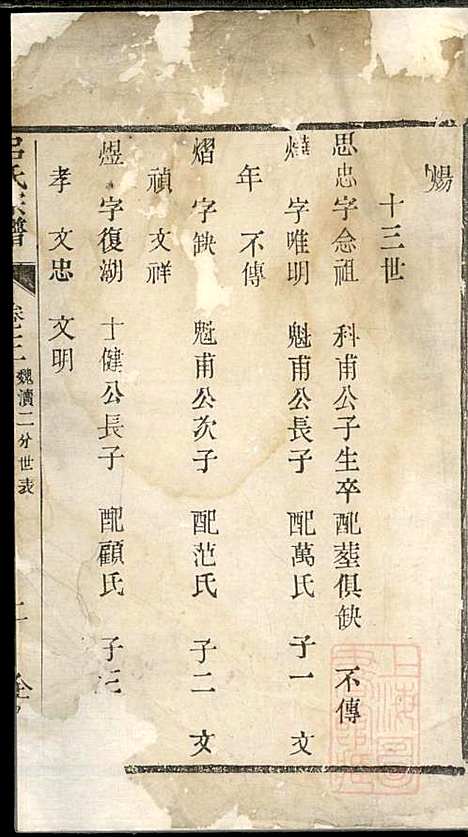 煬
十三世
思忠字念祖 科甫公子生卒配塟俱缺 不傳
字唯明 魁甫公長子 配萬氏 子一 文
年 不傳
熠 字缺 魁甫公次子 配范氏 子二 文
禎 文祥
煜 字復湖 士健公長子 配顧氏 子三
孝 文忠 文明
呂氏宗譜 卷十三 魏瀆二分世表
上海圖書館藏